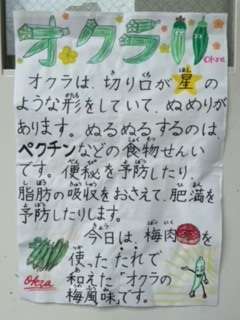 オクラ
Okra
オクラは、切り口が星の
ような形をしていて、ぬめりが
あります。ぬるぬるするのは、
ペクチンなどの食物せんい
です。便秘を予防したり、
脂肪の吸収をおさえて、肥満を
予防したりします。
今日は、梅肉を
使ったたれで
和えた"オクラの
梅風味"です。
Okra